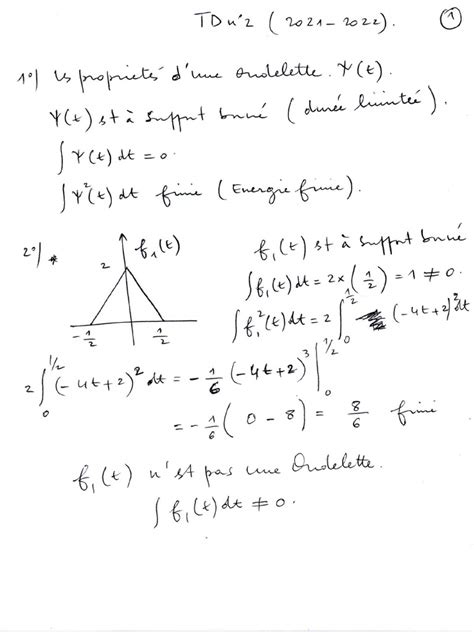 TD n°2 (2021-2022). 1
1°/ les propriétés d'une ondelette. Ψ(t).
Ψ(t) est à support borné (durée limitée).
∫ Ψ(t) dt = 0.
∫ Ψ²(t) dt finie (Energie finie).
2°/ * f₁(t) 2 -1/2 1/2
f₁(t) est à support borné
∫ f₁(t) dt = 2 × (1/2) = 1 ≠ 0.
∫ f₁²(t) dt = 2 ∫₀^{1/2} (-4t+2)² dt
2 ∫₀^{1/2} (-4t+2)² dt = -1/6 (-4t+2)³ |₀^{1/2}
= -1/6 (0 - 8) = 8/6 finie
f₁(t) n'est pas une Ondelette.
∫ f₁(t) dt ≠ 0.